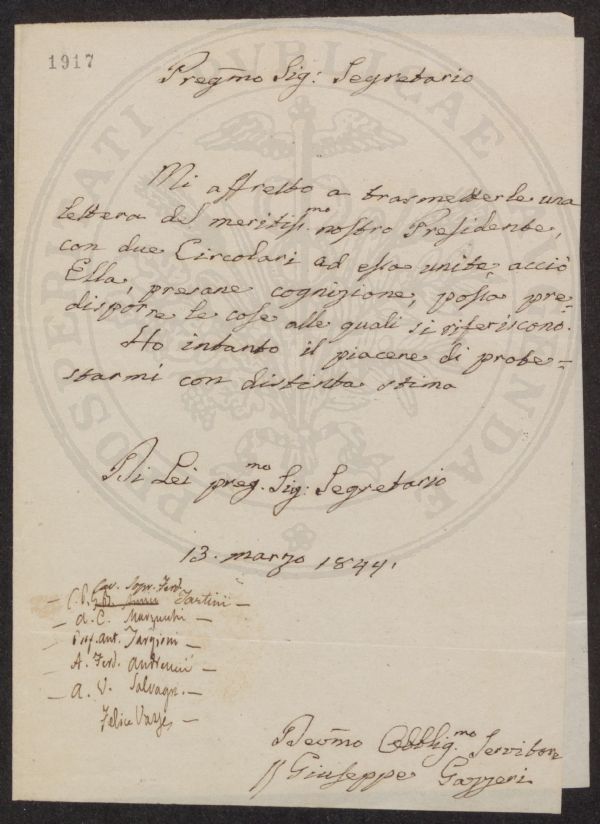 1917
Preg̃mo Sig: Segretario
Mi affretto a trasmetterle una
lettera del meritiss.mo nostro Presidente,
con due Circolari ad essa unite, acciò
Ella, presane cognizione, possa pre=
disporre le cose alle quali si riferiscono.
Ho intanto il piacere di prote=
starmi con distinta stima
Di Lei preg.mo Sig: Segretario
13. marzo 1844.
Cav. Sopr. Ferd.
Tartini —
— A. C. Marzucchi —
— Prof. Ant. Targioni —
— A. Ferd. Andreucci —
— A. V. Salvagn. —
Felice
Deõmo Obblig.mo Servitore
Giuseppe Gazzeri
PROSPERITATI PVBLICAE AVGENDAE